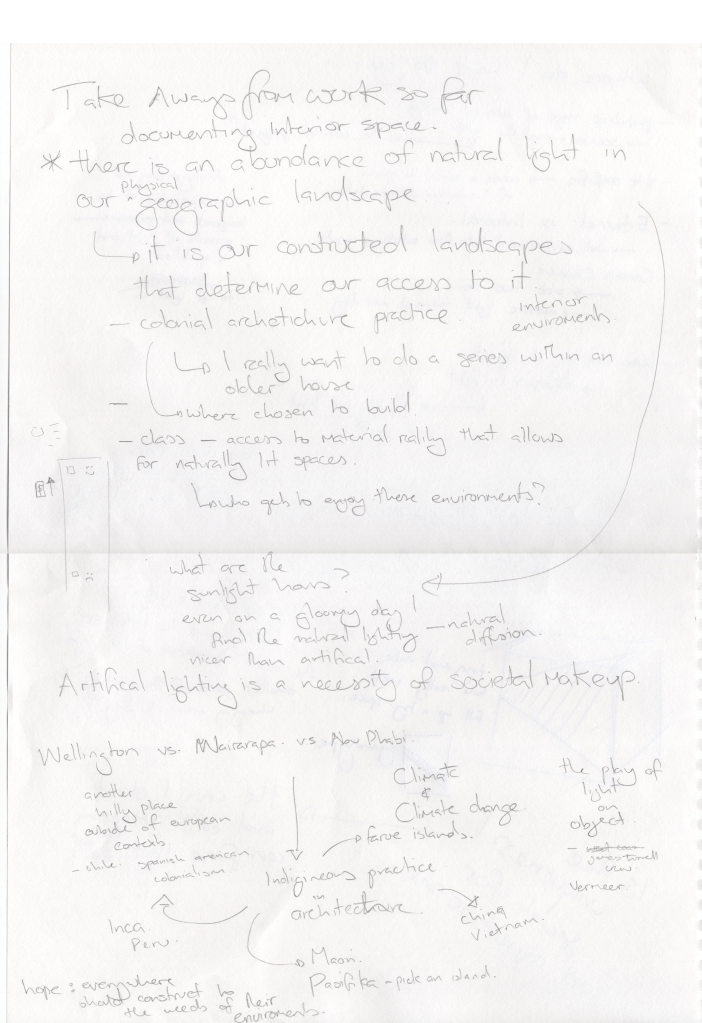 Take Aways from work so far
documenting Interior space.
* there is an abundance of natural light in
our ^physical geographic landscape
it is our constructed landscapes
that determine our access to it.
- colonial archetichure practice.
interior
enviroments.
I really want to do a series within an
older house
-
where chosen to build.
- class - access to material reality that allows
for naturally lit spaces.
who gets to enjoy these environments?
what are the
sunlight hours?
even on a gloomy day I
find the natural lighting
nicer than artifical.
- natural
diffusion.
Artifical lighting is a necessity of societal makeup.
Wellington vs. Wairarapa. vs. Abu Dhabi.
another
hilly place
outside of european
contexts
- chile. spanish american
colonialism
Climate
&
Climate change.
the play of
light
on
object.
-
Vermeer.
faroe islands.
Indigineous practice
in
architecture.
Inca.
Peru.
china
Vietnam.
Maori.
Pasifika - pick an island.
hope: everywhere
should construct to
the needs of their
enviroments.